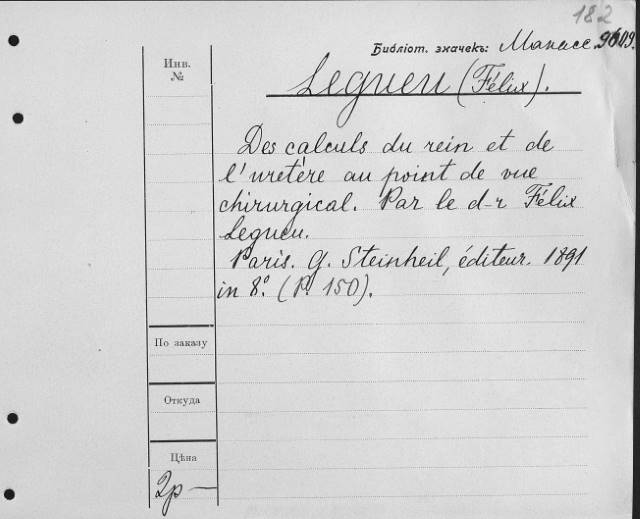 182
Библіот. значекъ: Манасс.
Инв.
№
Legueu (Félix).
Des calculs du rein et de
l'uretère au point de vue
chirurgical. Par le d-r Félix
Legueu.
Paris. G. Steinheil, éditeur. 1891
in 8º. (P. 150).
По заказу
Откуда
Цѣна
2р —